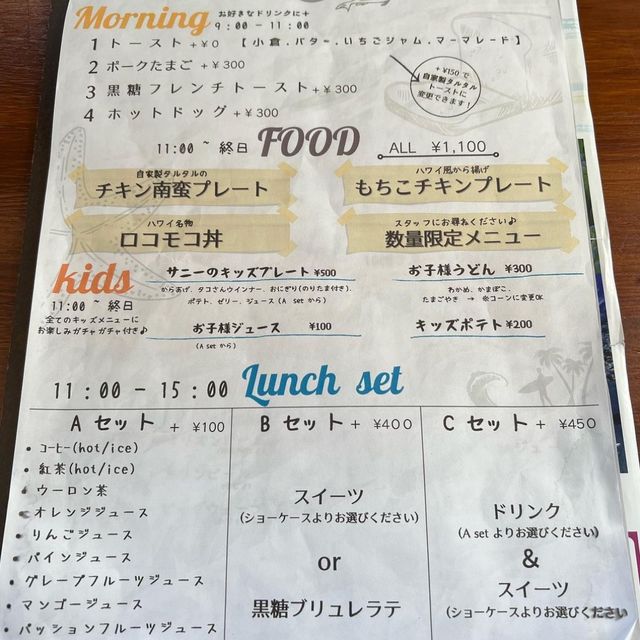 Morning お好きなドリンクに+
9:00-11:00
1 トースト +¥0 【小倉.バター.いちごジャム.マーマレード】
2 ポークたまご +¥300
3 黒糖フレンチトースト +¥300
4 ホットドッグ +¥300
+¥150で
自家製タルタル
トーストに
変更できます!
11:00 ~ 終日 FOOD ALL ¥1,100
自家製タルタルの
チキン南蛮プレート
ハワイ風から揚げ
もちこチキンプレート
ハワイ名物
ロコモコ丼
スタッフにお尋ねください♪
数量限定メニュー
kids
11:00 ~ 終日
全てのキッズメニューに
お楽しみガチャガチャ付き♪
サニーのキッズプレート ¥500
からあげ、タコさんウインナー、おにぎり(のりたま付き)、
ポテト、ゼリー、ジュース(A set から)
お子様うどん ¥300
わかめ、かまぼこ、
たまごやき → ※コーンに変更OK
お子様ジュース ¥100
(A set から)
キッズポテト ¥200
11:00-15:00 Lunch set
A セット + ¥100
• コーヒー(hot/ice)
• 紅茶(hot/ice)
• ウーロン茶
• オレンジジュース
• りんごジュース
• パインジュース
• グレープフルーツジュース
• マンゴージュース
• パッションフルーツジュース
B セット + ¥400
スイーツ
(ショーケースよりお選びください)
or
黒糖ブリュレラテ
C セット + ¥450
ドリンク
(A set よりお選びください)
&
スイーツ
(ショーケースよりお選びください)